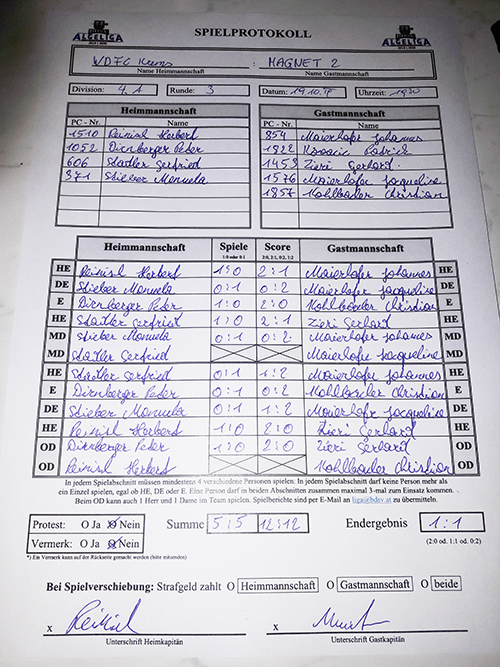 ALGELIGA SPIELPROTOKOLL ALGELIGA
WDFC : MAGNET 2
Name Heimmannschaft Name Gastmannschaft
Division: 4.1 Runde: 3 Datum: 19.10. Uhrzeit: 1930
Heimmannschaft Gastmannschaft
PC - Nr. Name PC - Nr. Name
1510 Reinisl Herbert 854 Maierhofer Johannes
1052 Dirnberger Peter 1822 Patrick
606 Stadler Gerfried 1453 Zieri Gerhard
371 Stieber Manuela 1576 Maierhofer Jacqueline
1857 Kohlbacher Christian
Heimmannschaft Spiele Score Gastmannschaft
1:0 oder 0:1 2:0, 2:1, 0:2, 1:2
HE Reinisl Herbert 1:0 2:1 Maierhofer Johannes HE
DE Stieber Manuela 0:1 0:2 Maierhofer Jacqueline DE
E Dirnberger Peter 1:0 2:0 Kohlbacher Christian E
HE Stadler Gerfried 1:0 2:1 Zieri Gerhard HE
MD Stieber Manuela 0:1 0:2 Maierhofer Johannes MD
MD Stadler Gerfried Maierhofer Jacqueline MD
HE Stadler Gerfried 0:1 1:2 Maierhofer Johannes HE
E Dirnberger Peter 0:1 0:2 Kohlbacher Christian E
DE Stieber Manuela 0:1 1:2 Maierhofer Jacqueline DE
HE Reinisl Herbert 1:0 2:0 Zieri Gerhard HE
OD Dirnberger Peter 1:0 2:0 Zieri Gerhard OD
OD Reinisl Herbert Kohlbacher Christian OD
In jedem Spielabschnitt müssen mindestens 4 verschiedene Personen spielen. In jedem Spielabschnitt darf keine Person mehr als
ein Einzel spielen, egal ob HE, DE oder E. Eine Person darf in beiden Abschnitten zusammen maximal 3-mal zum Einsatz kommen.
Beim OD kann auch 1 Herr und 1 Dame im Team spielen. Spielberichte sind per E-Mail an liga@bdsv.at zu übermitteln.
Protest: O Ja O Nein Summe 5:5 12:12 Endergebnis 1:1
Vermerk: O Ja O Nein (2:0 od. 1:1 od. 0:2)
*) Ein Vermerk kann auf der Rückseite gemacht werden (bitte mitsenden)
Bei Spielverschiebung: Strafgeld zahlt O Heimmannschaft O Gastmannschaft O beide
x x
Unterschrift Heimkapitän Unterschrift Gastkapitän